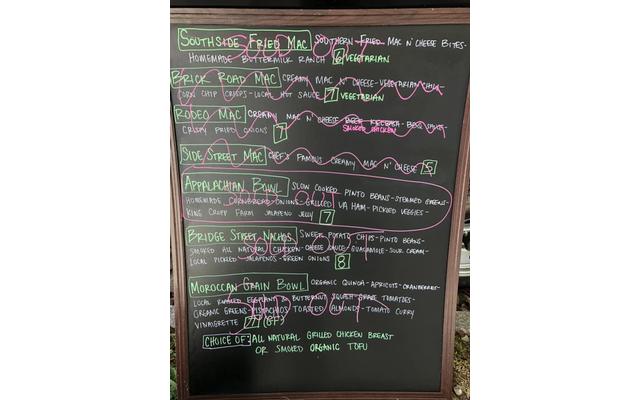 SOUTHSIDE FRIED MAC SOUTHERN FRIED MAC N' CHEESE BITES-
HOMEMADE BUTTERMILK RANCH 6 VEGETARIAN
SOLD OUT
BRICK ROAD MAC CREAMY MAC N' CHEESE-VEGETARIAN CHILI-
CORN CHIP CRISPS-LOCAL HOT SAUCE 7 VEGETARIAN
RODEO MAC CREAMY MAC N' CHEESE BEEF KIELBASA-BBQ SAUCE-
SMOKED CHICKEN
CRISPY FRIED ONIONS 7
SIDE STREET MAC CHEF'S FAMOUS CREAMY MAC N' CHEESE 5
APPALACHIAN BOWL SLOW COOKED PINTO BEANS-STEWED GREENS-
HOMEMADE CORNBREAD-ONIONS-GRILLED VA HAM-PICKLED VEGGIES-
KING CROPP FARM JALAPENO JELLY 7
SOLD OUT
BRIDGE STREET NACHOS SWEET POTATO CHIPS-PINTO BEANS-
SMOKED ALL NATURAL CHICKEN-CHEESE SAUCE-GUACAMOLE-SOUR CREAM-
LOCAL PICKLED JALAPENOS-GREEN ONIONS 8
SOLD OUT
MOROCCAN GRAIN BOWL ORGANIC QUINOA-APRICOTS-CRANBERRIES-
LOCAL ROASTED EGGPLANT BUTTERNUT SQUASH GRAPE TOMATOES-
ORGANIC GREENS-PISTACHIOS TOASTED ALMONDS-TOMATO CURRY
VINAIGRETTE 7 (GF)
SOLD OUT
CHOICE OF: ALL NATURAL GRILLED CHICKEN BREAST
OR SMOKED ORGANIC TOFU